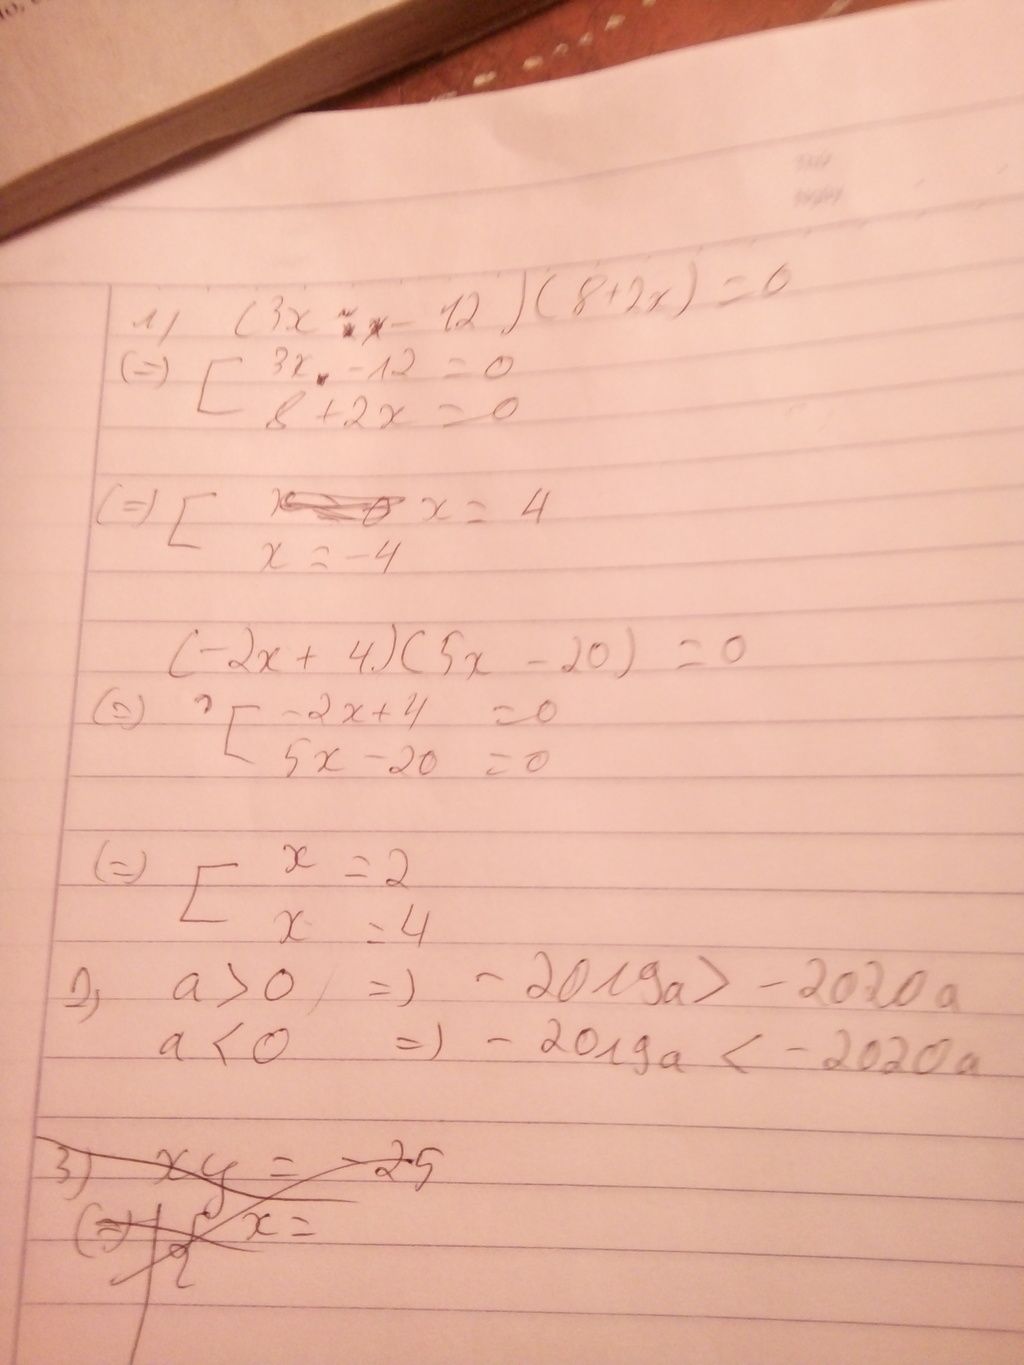 1) (3x - 12)(8+2x) = 0
(=) [ 3x - 12 = 0
8 + 2x = 0
(=) [ x = 4
x = -4
(-2x + 4)(5x - 20) = 0
(=) [ -2x+4 = 0
5x - 20 = 0
(=) [ x = 2
x = 4
2, a > 0 =) - 2019a > - 2020a
a < 0 =) - 2019a < - 2020a
3) xy = -25
(=) { x =